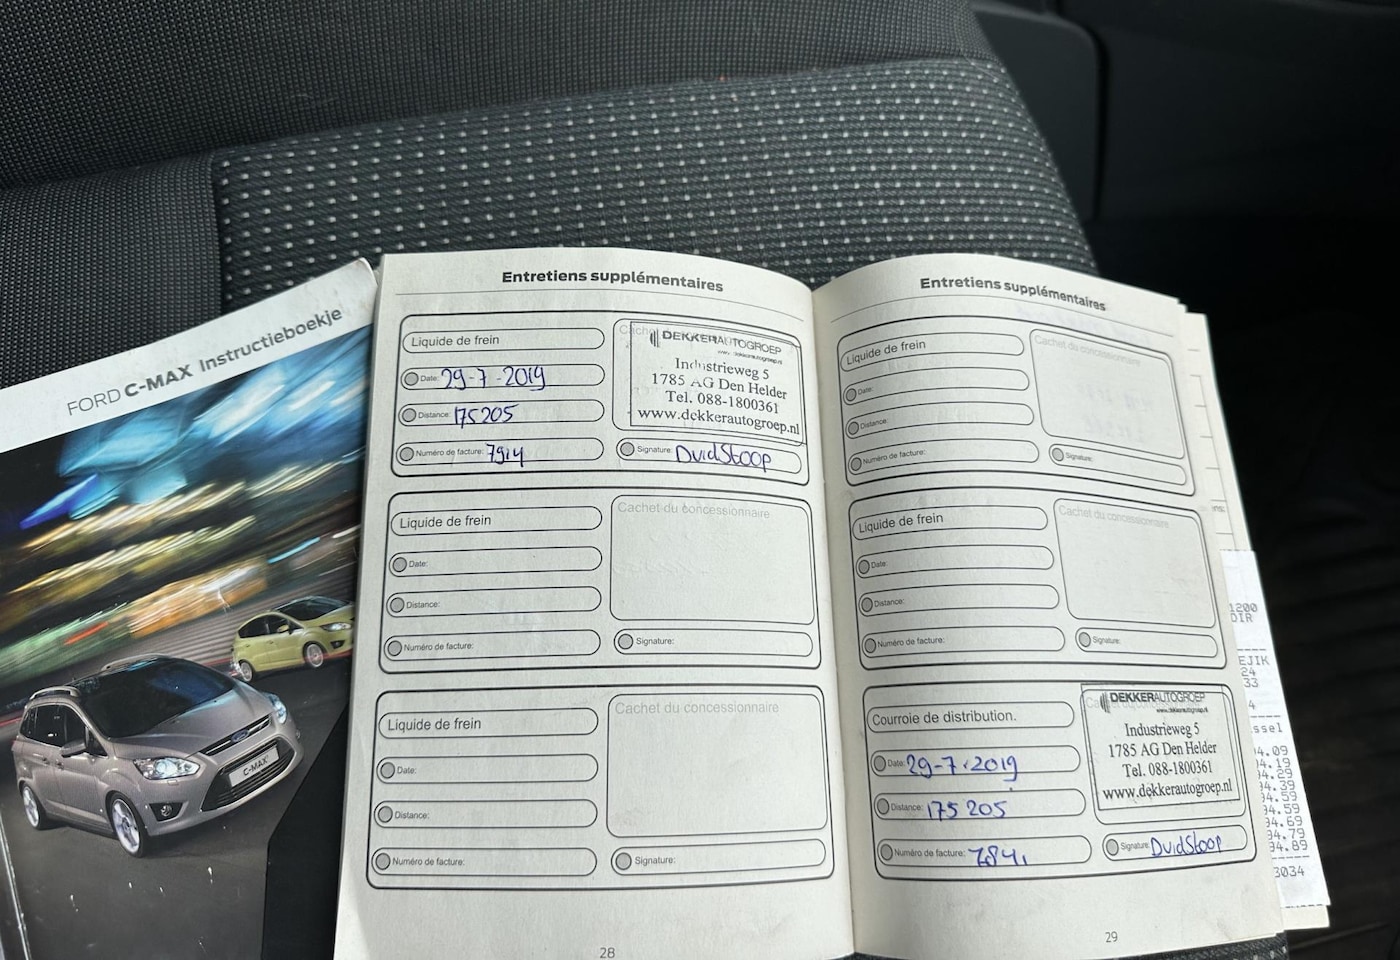 FORD C-MAX Instructieboekje
C-MAX
Entretiens supplémentaires
Liquide de frein
Date: 29-7-2019
Distance: 175205
Numéro de facture: 7914
DEKKERAUTOGROEP
Industrieweg 5
1785 AG Den Helder
Tel. 088-1800361
www.dekkerautogroep.nl
Signature: DvidStoop
Liquide de frein
Date:
Distance:
Numéro de facture:
Cachet du concessionnaire
Signature:
Liquide de frein
Date:
Distance:
Numéro de facture:
Cachet du concessionnaire
Signature:
28
Entretiens supplémentaires
Liquide de frein
Date:
Distance:
Numéro de facture:
Cachet du concessionnaire
Signature:
Liquide de frein
Date:
Distance:
Numéro de facture:
Cachet du concessionnaire
Signature:
Courroie de distribution.
Date: 29-7-2019
Distance: 175205
Numéro de facture:
DEKKERAUTOGROEP
www.dekkerautogroep.nl
Industrieweg 5
1785 AG Den Helder
Tel. 088-1800361
www.dekkerautogroep.nl
Signature: DvidStoop
29
1200
DIR
EJIK
24
33
4
ssel
4.09
4.19
4.29
4.39
4.59
4.59
94.69
94.79
94.89
3034